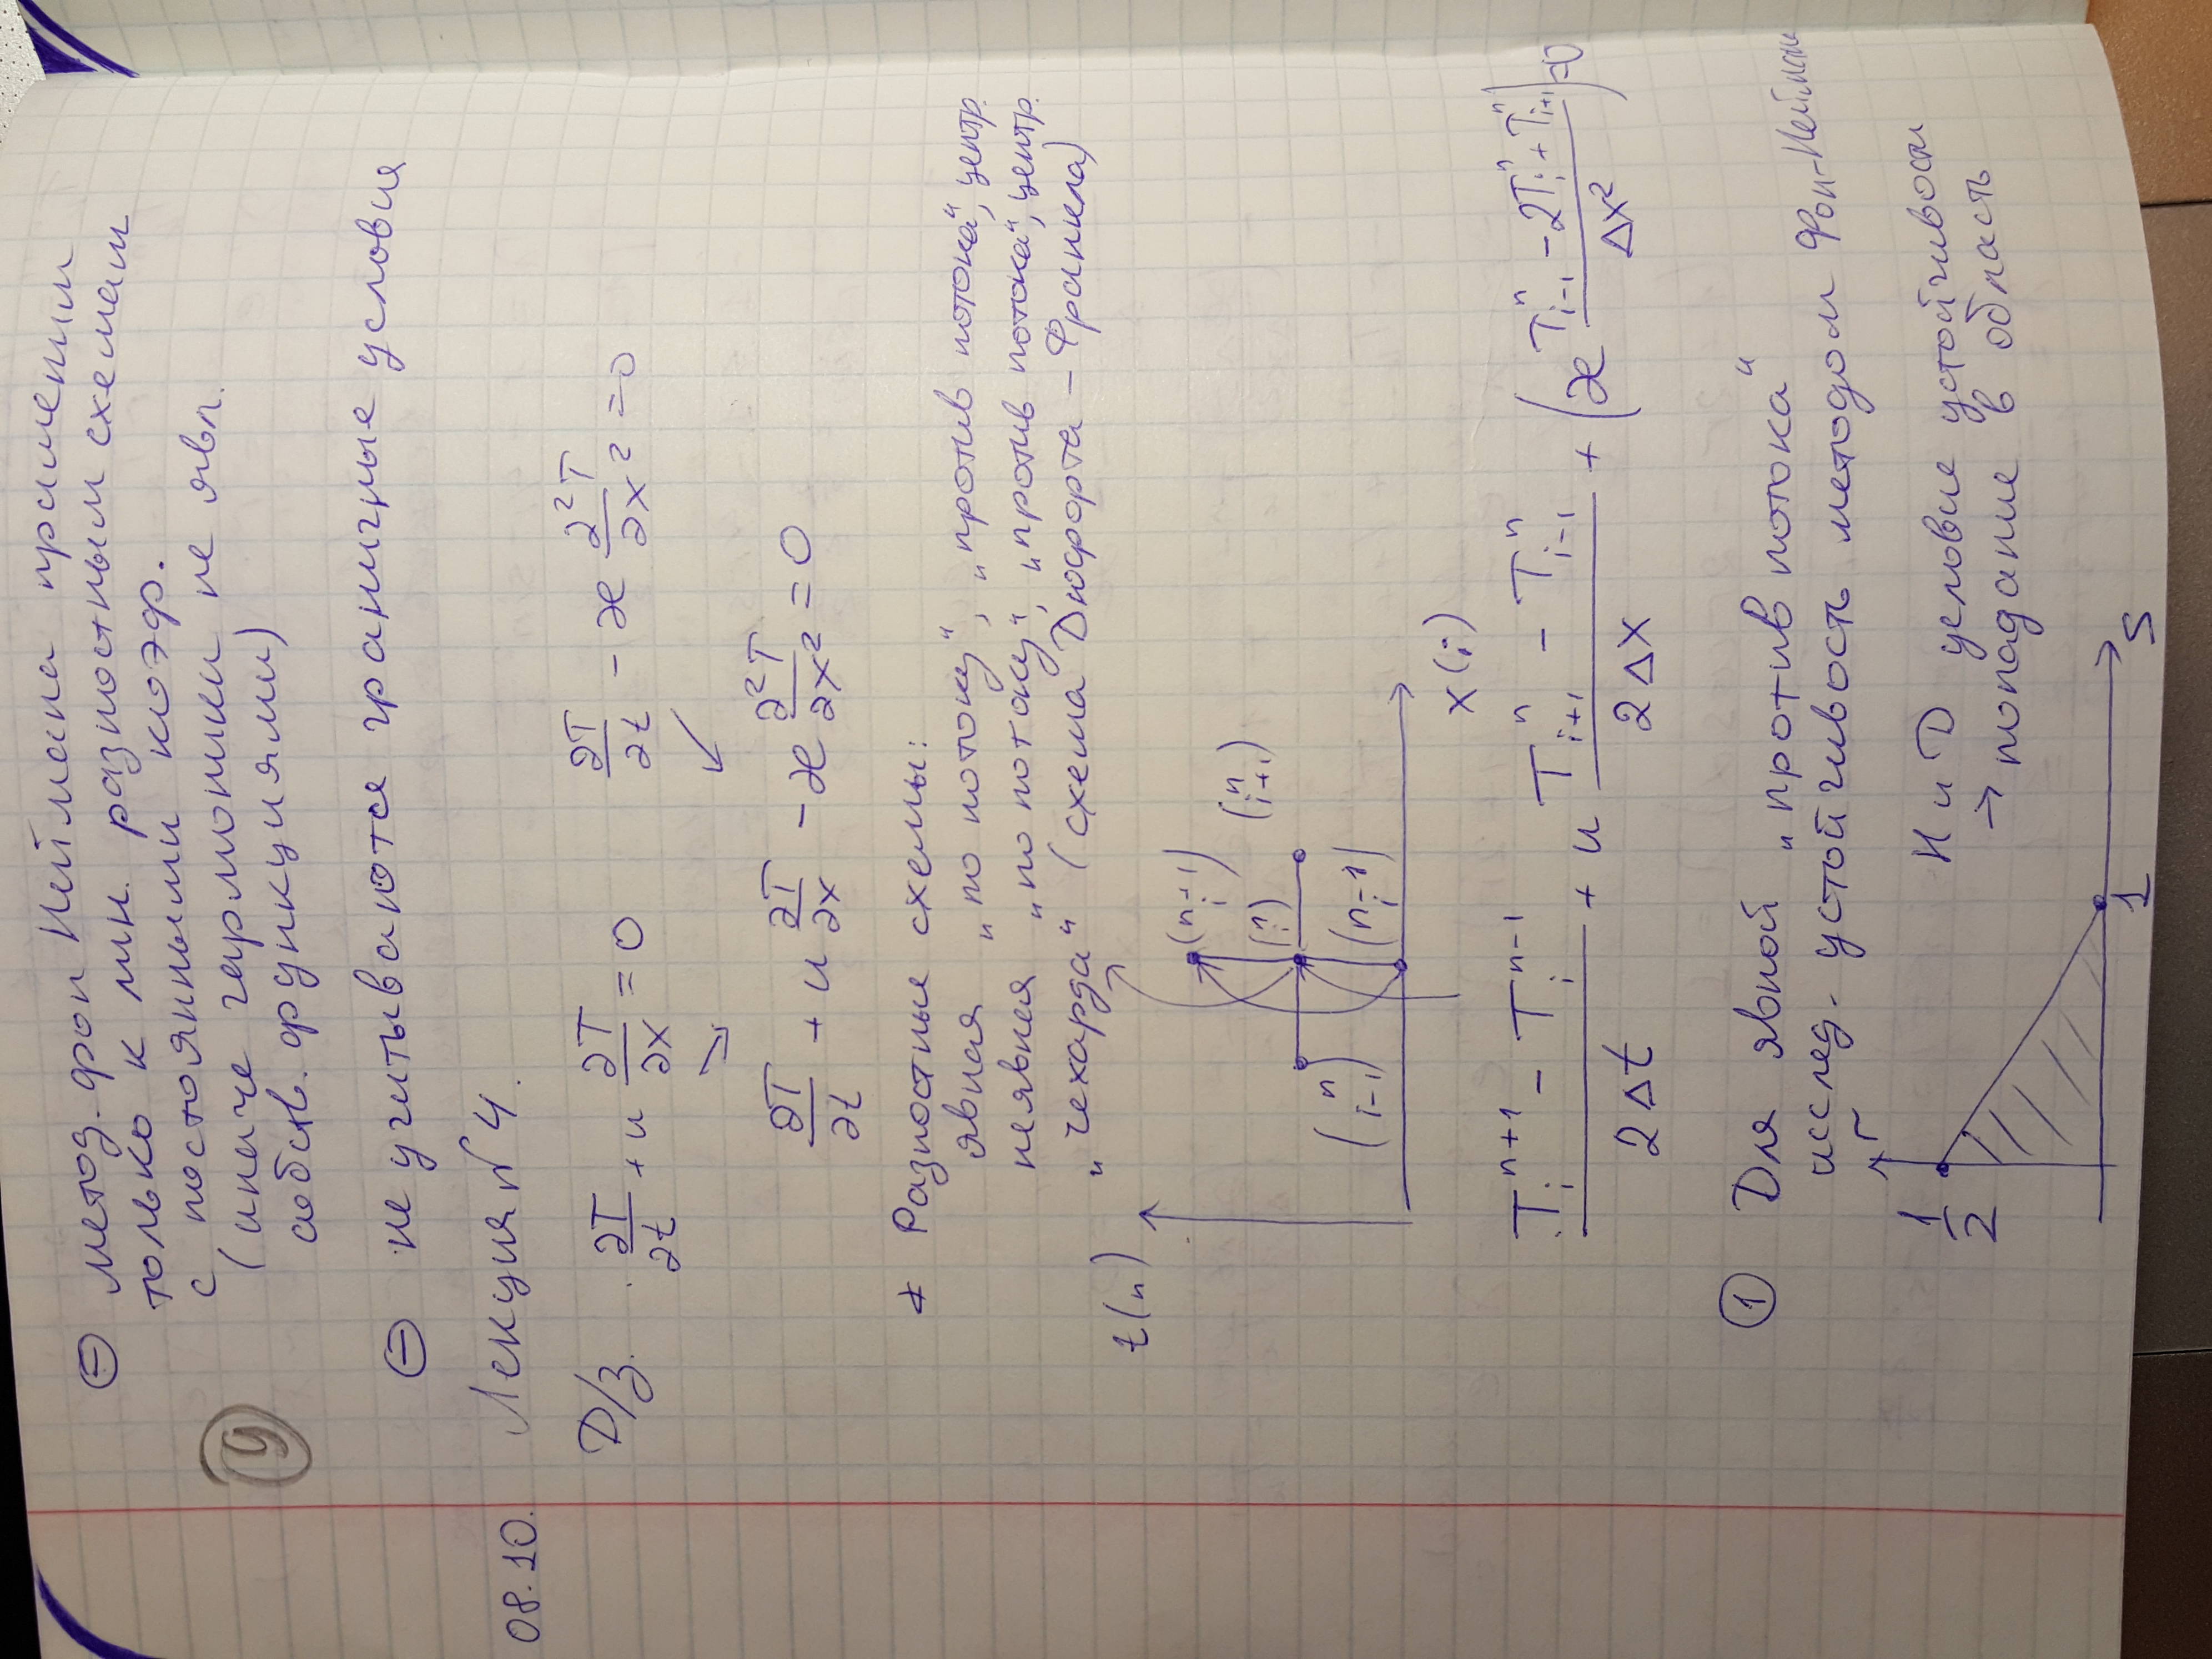 ⊖ метод. фон Неймана применим
только к лин. разностным схемам
с постоянными коэф.
(иначе гармоники не явл.
собств. функциями)
9
⊖ не учитываются граничные условия
08.10. Лекция №4.
Д/з. ∂T/∂t + u ∂T/∂x = 0   ∂T/∂t - æ ∂²T/∂x² = 0
↘ ↙
∂T/∂t + u ∂T/∂x - æ ∂²T/∂x² = 0
* Разностные схемы:
явная „по потоку“, „против потока“, центр.
неявная „по потоку“, „против потока“, центр.
„чехарда“ (схема Дюфорта – Франкла)
t(n)
(n+1 i)
(n i) (n i+1)
(n i-1) (n-1 i)
x(i)
(T_i^{n+1} - T_i^{n-1})/(2Δt) + u (T_{i+1}^n - T_{i-1}^n)/(2Δx) + (æ (T_{i-1}^n - 2T_i^n + T_{i+1}^n)/Δx²) = 0
① Для явной „против потока“
исслед. устойчивость методом Фон-Неймана
r
1/2
Н и Д условие устойчивости
→ попадание в область
1 S